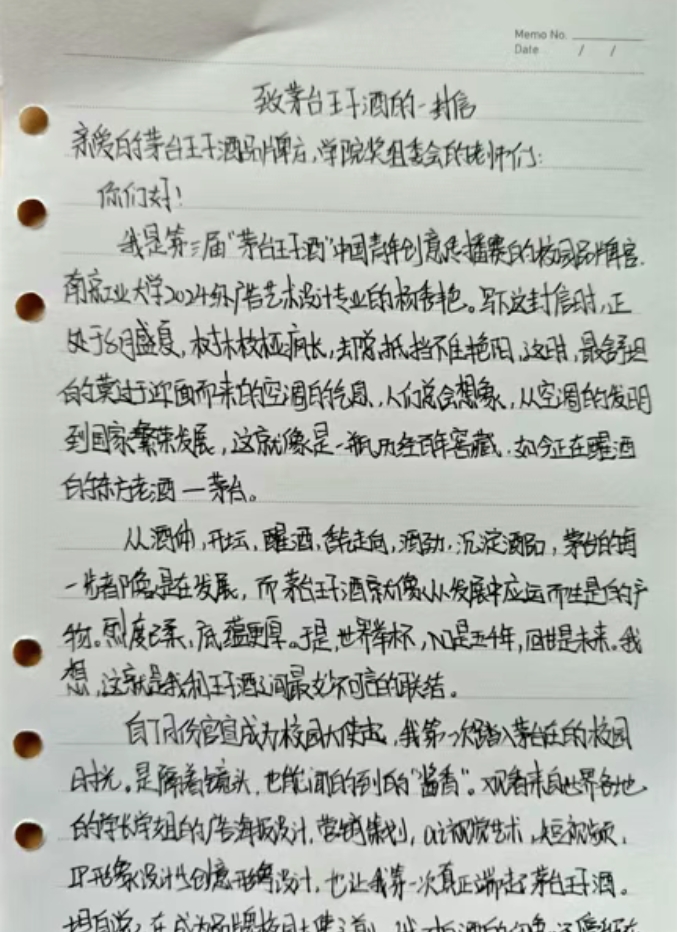 Memo No.
Date / /
致茅台王子酒的一封信
亲爱的茅台王子酒品牌方,学院奖组委会的老师们:
你们好!
我是第三届"茅台王子酒"中国青年创意传播赛的校园品牌官,
南京工业大学2024级广告艺术设计专业的杨秀艳。写下这封信时,正
处于6月盛夏,树木枝桠疯长,却常抵挡不住艳阳,这时,最舒坦
的莫过于迎面而来的空调的气息,人们总会想象,从空调的发明
到国家繁荣发展,这就像是一瓶历经百年窖藏,如今正在醒酒
的东方老酒—茅台。
从酒体,开坛,醒酒,香气走向,酒劲,沉淀酒品,茅台的每
一步都像是在发展,而茅台王子酒就像从发展中应运而生是的产
物。烈度已柔,底蕴更厚。于是,世界举杯,入口是五千年,回甘是未来。我
想,这就是我和王子酒之间最妙不可言的联结。
自7月份官宣成为校园大使起,我第一次踏入茅台在的校园
时光。是隔着镜头,也能闻的到的"酱香"。观看来自世界各地
的学长学姐的广告海报设计,营销策划,ai视觉艺术,短视频,
IP形象设计与创意形象设计,也让我第一次真正端起茅台王子酒。
坦白说,在成为品牌校园大使之前,我对白酒的印象还停留在